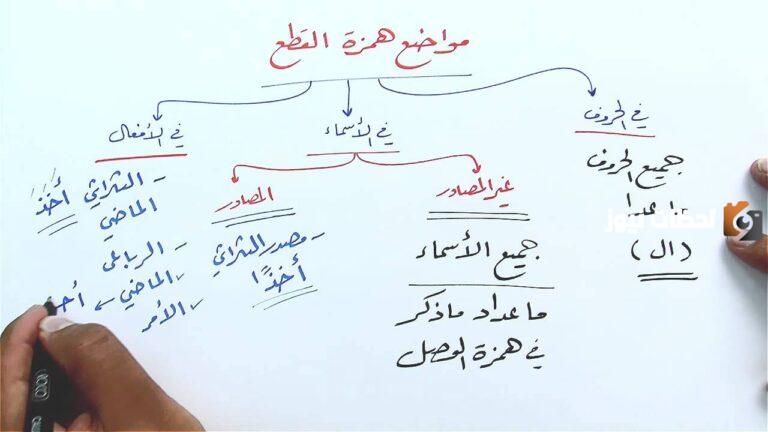 مواضع همزة القطع
في الحروف
جميع الحروف
ما عدا
(ال)
في الأسماء
غير المصادر
جميع الأسماء
ما عداد ماذكر
في همزة الوصل
المصادر
- مصدر الثلاثي
أخذًا
في الأفعال
- الثلاثي أَخَذَ
الماضي
- الرباعي
الماضي ← أحـ
الأمر
لحظات نيوز